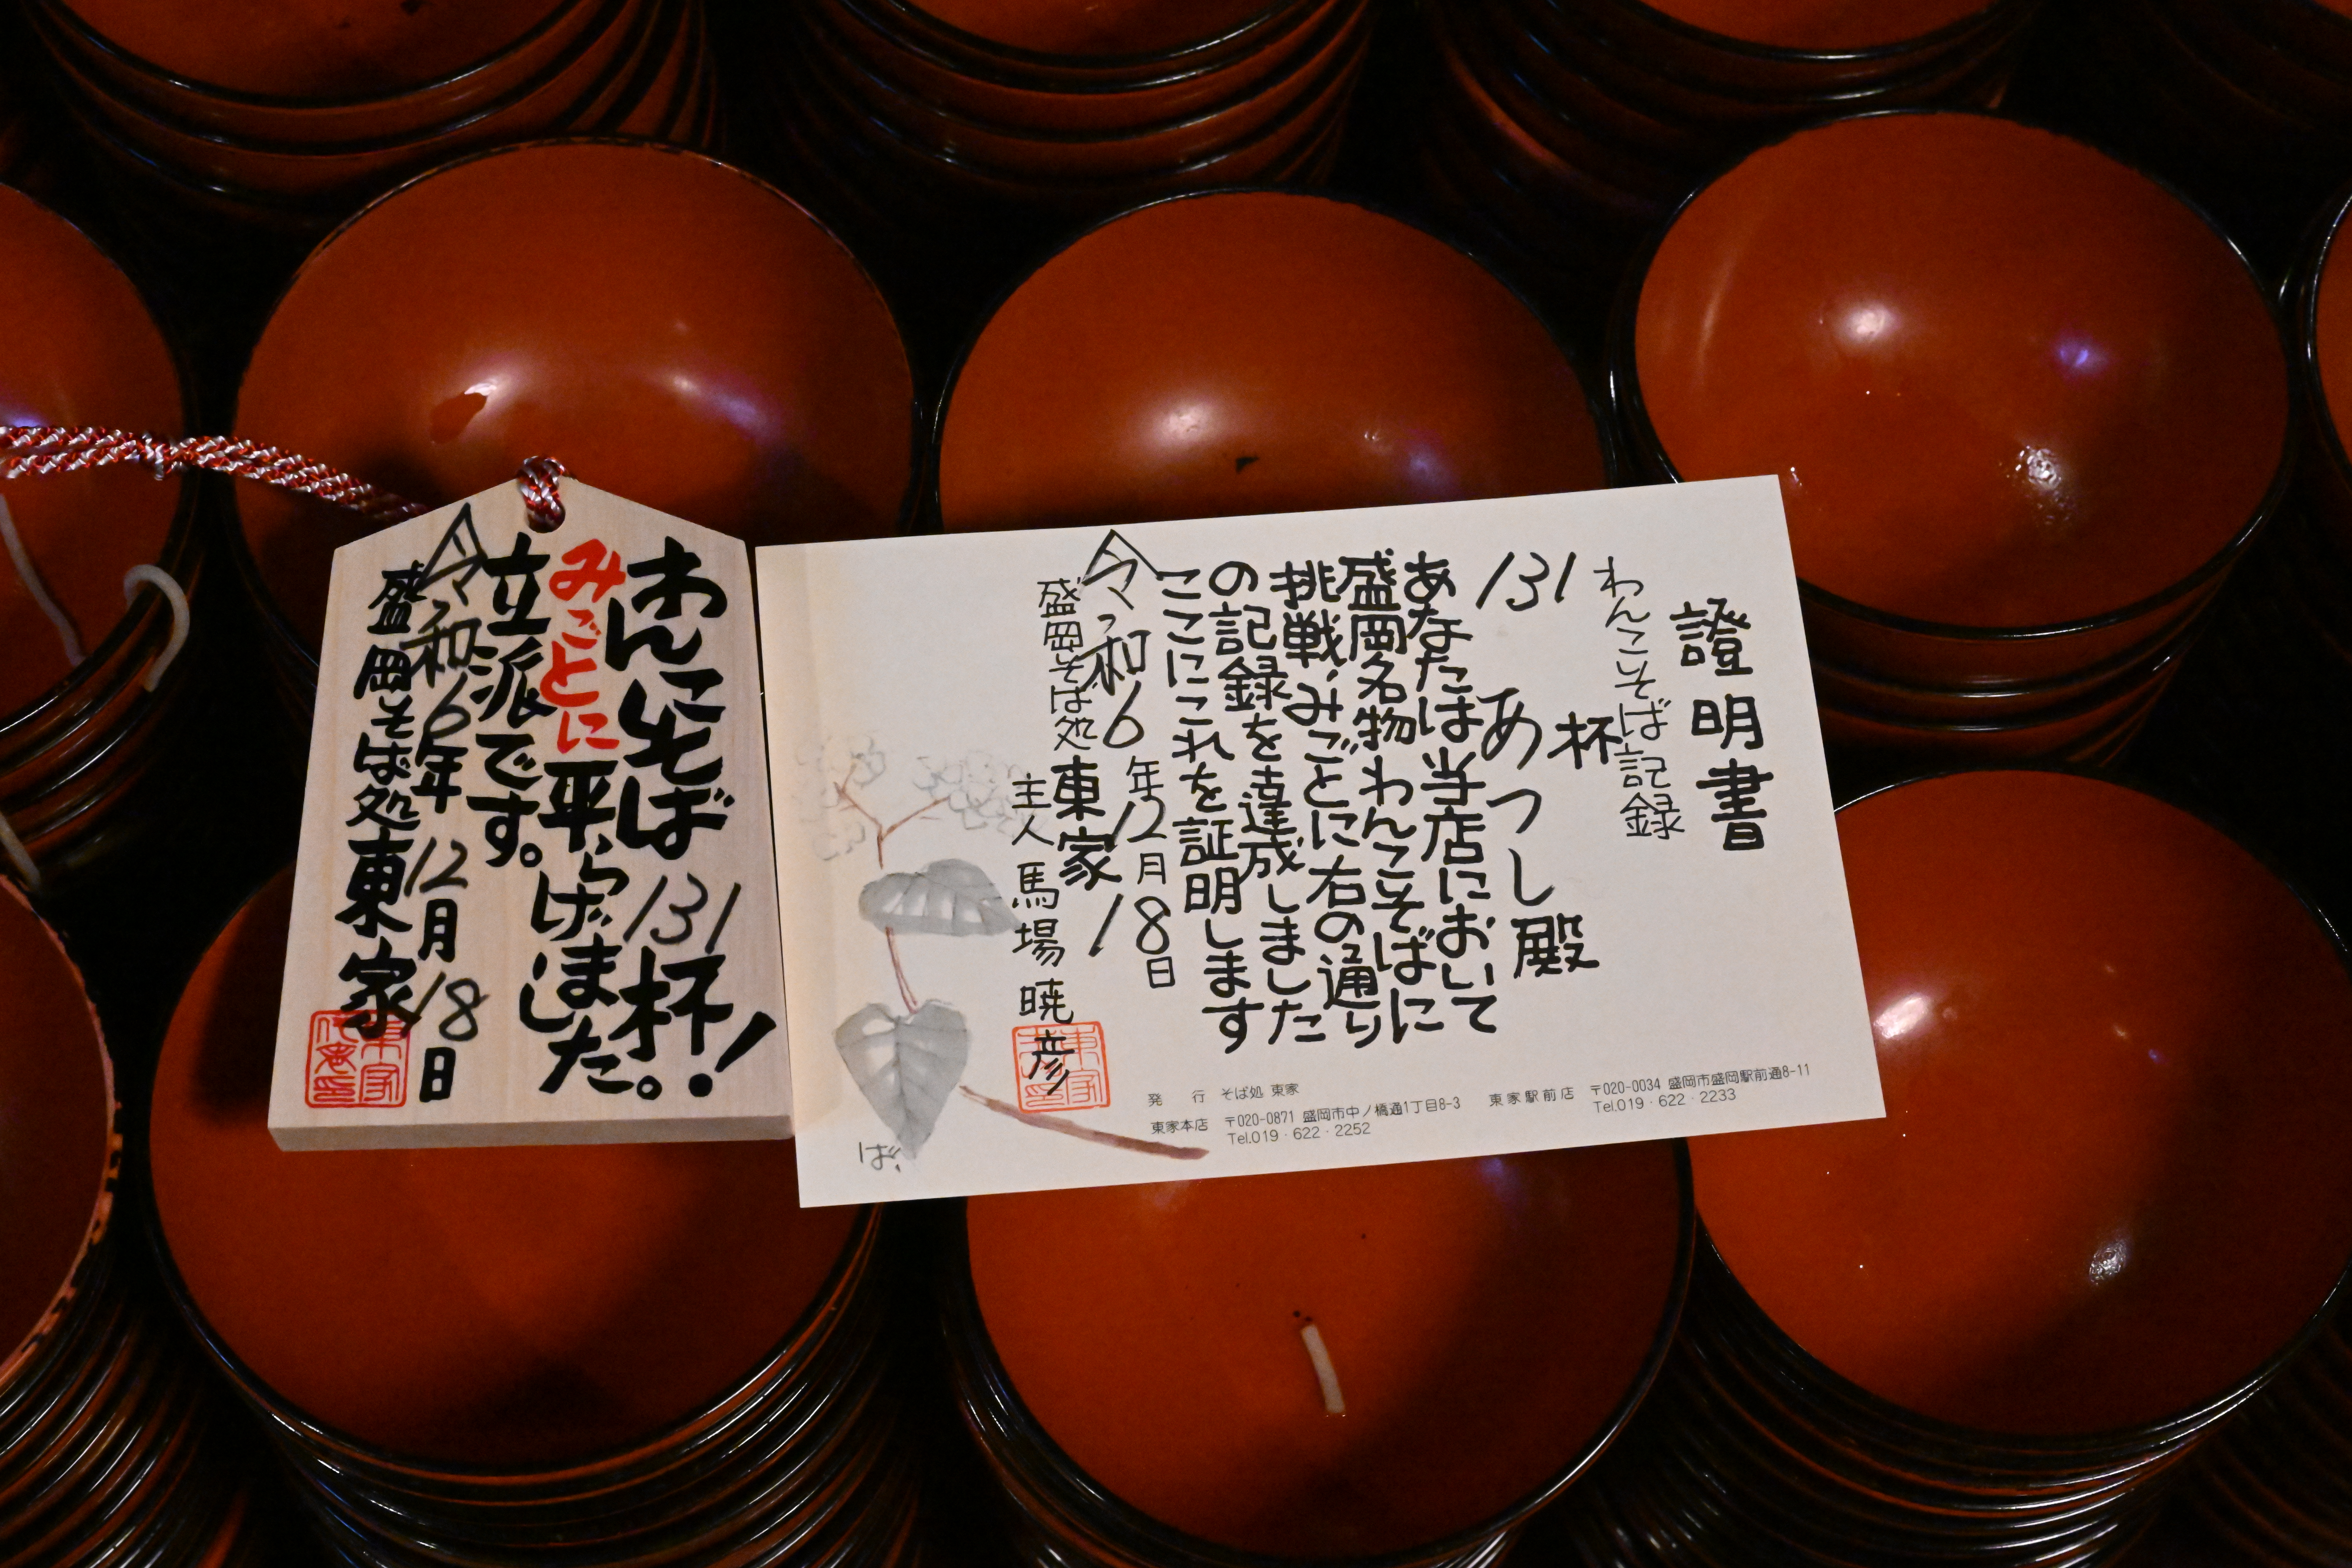 わんこそば131杯!
みごとに平らげました。
立派です。
令和6年12月18日
盛岡そば処東家
證明書
わんこそば記録
131杯
あつし殿
あなたは当店において
盛岡名物わんこそばに
挑戦、みごとに右の通り
の記録を達成しました
ここにこれを証明します
令和6年12月18日
盛岡そば処東家
主人馬場暁彦
ば
発行 そば処 東家
東家本店 〒020-0871 盛岡市中ノ橋通1丁目8-3
Tel.019・622・2252
東家駅前店 〒020-0034 盛岡市盛岡駅前通8-11
Tel.019・622・2233